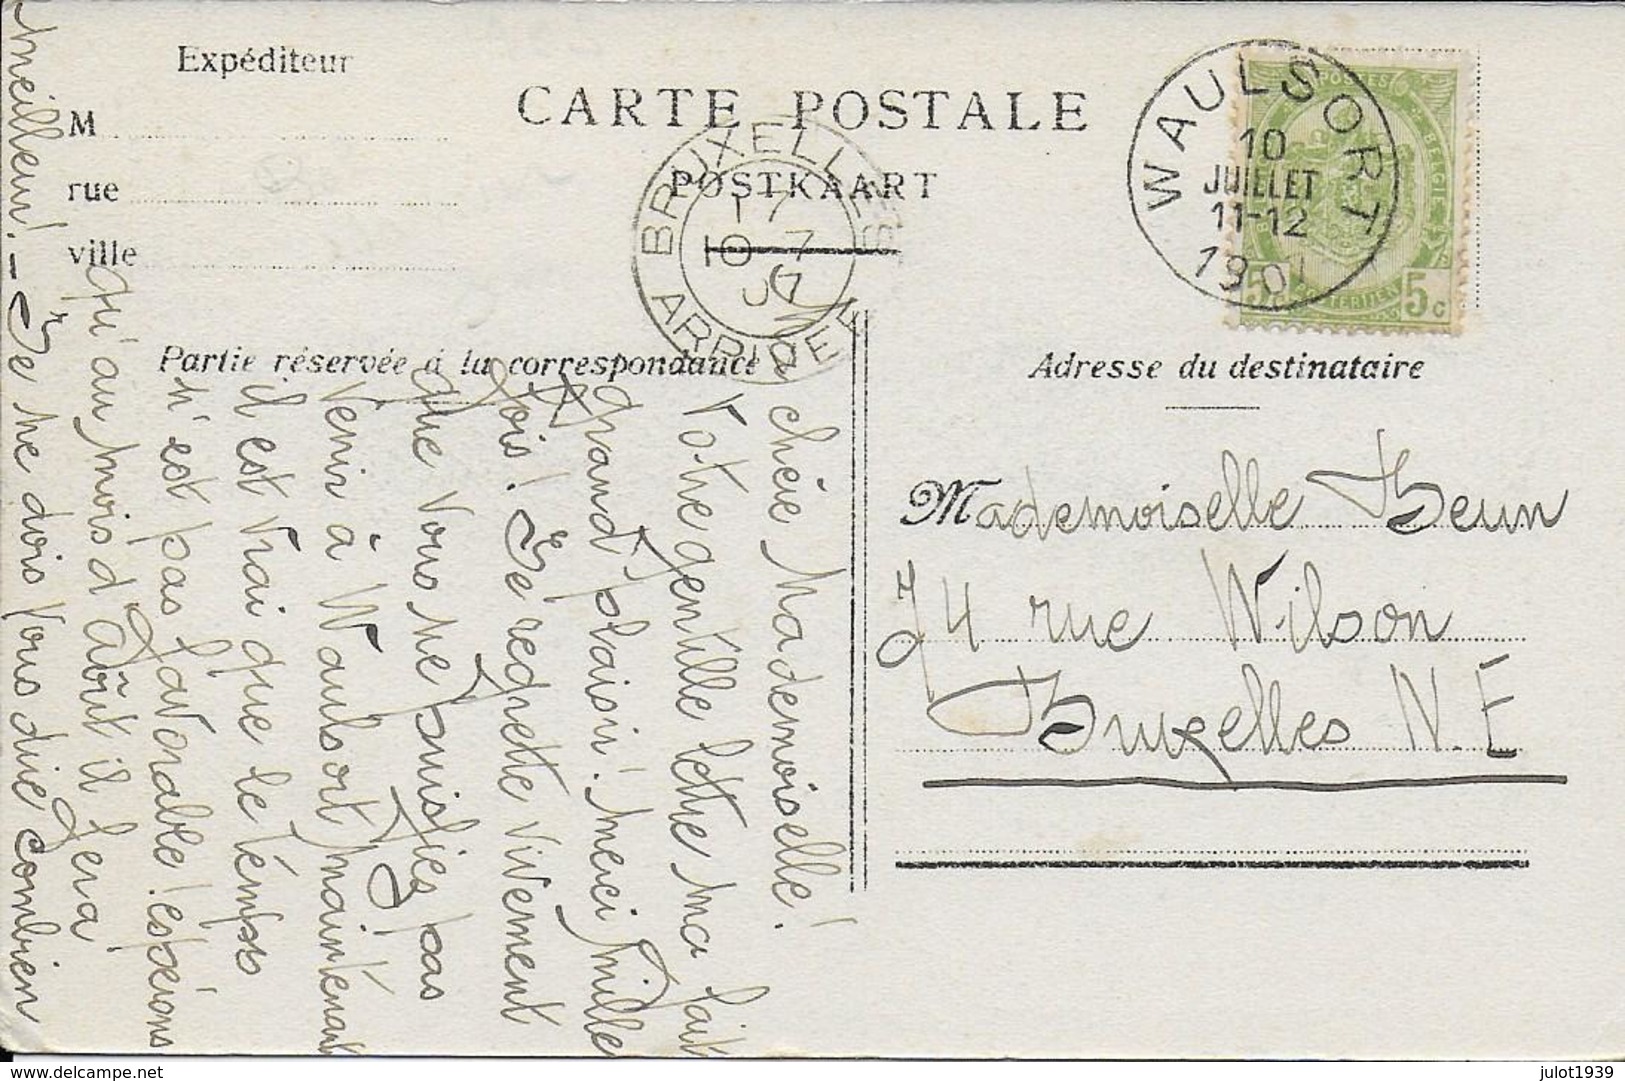 Expéditeur
M
rue
ville
CARTE POSTALE
POSTKAART
BRUXELLES
17
10 7
07
ARRIVÉE
WAULSORT
10
JUILLET
11-12
190
POSTES
BELGIE
5c 5c
Partie réservée à la correspondance
Adresse du destinataire
Mademoiselle Beun
74 rue Wilson
Bruxelles N. E
Ma chère Mademoiselle!
Votre gentille lettre ma fait
grand plaisir! Merci mille
fois! Je regrette vivement
que vous ne puissiez pas
venir à Waulsort maintenant
il est vrai que le temps
n'est pas favorable! espérons
qu'au mois d'Août il fera
meilleur! – Je ne dois vous dire combien
julot1939